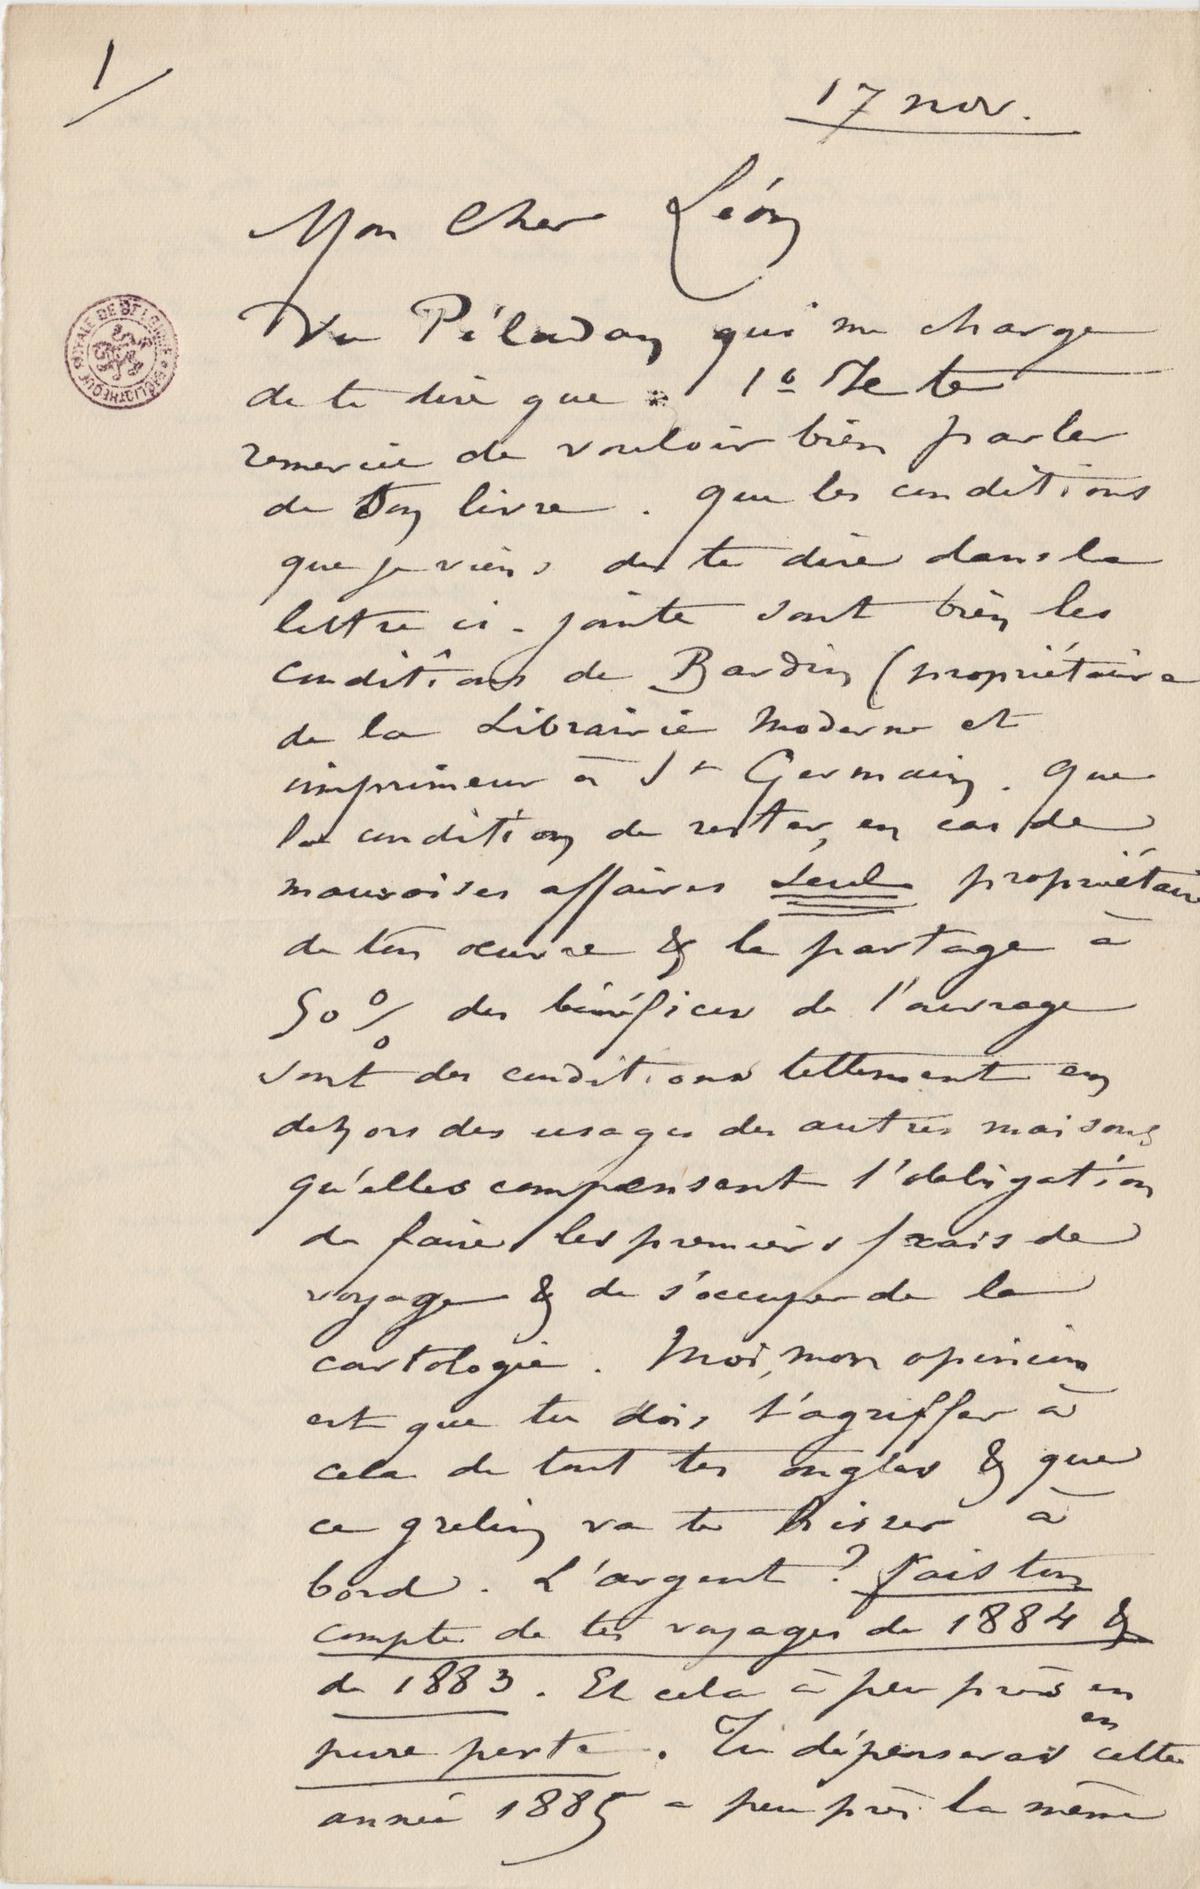 1/
17 nov.
Mon Cher Léon
Vu Péladan qui me charge
de te dire que 1º Je te
remercie de vouloir bien parler
de Son livre. Que les conditions
que je viens de te dire dans la
lettre ci-jointe sont bien les
conditions de Bardin (propriétaire
de la Librairie Moderne et
imprimeur à St Germain. Que
la condition de rester, en cas de
mauvaises affaires seul propriétaire
de ton œuvre & le partage à
50 % des bénéfices de l'ouvrage
sont des conditions tellement en
dehors des usages des autres maisons
qu'elles compensent l'obligation
de faire les premiers frais de
voyage & de s'occuper de la
cartologie. Moi, mon opinion
est que tu dois t'agriffer à
cela de tout tes ongles & que
ce grelin va te hisser à
bord. L'argent ? Fais ton
compte de tes voyages de 1884 &
de 1883. Et cela à peu près en
pure perte. Tu dépenserais en cette
année 1885 a peu près la même
BIBLIOTHÈQUE ROYALE DE BELGIQUE